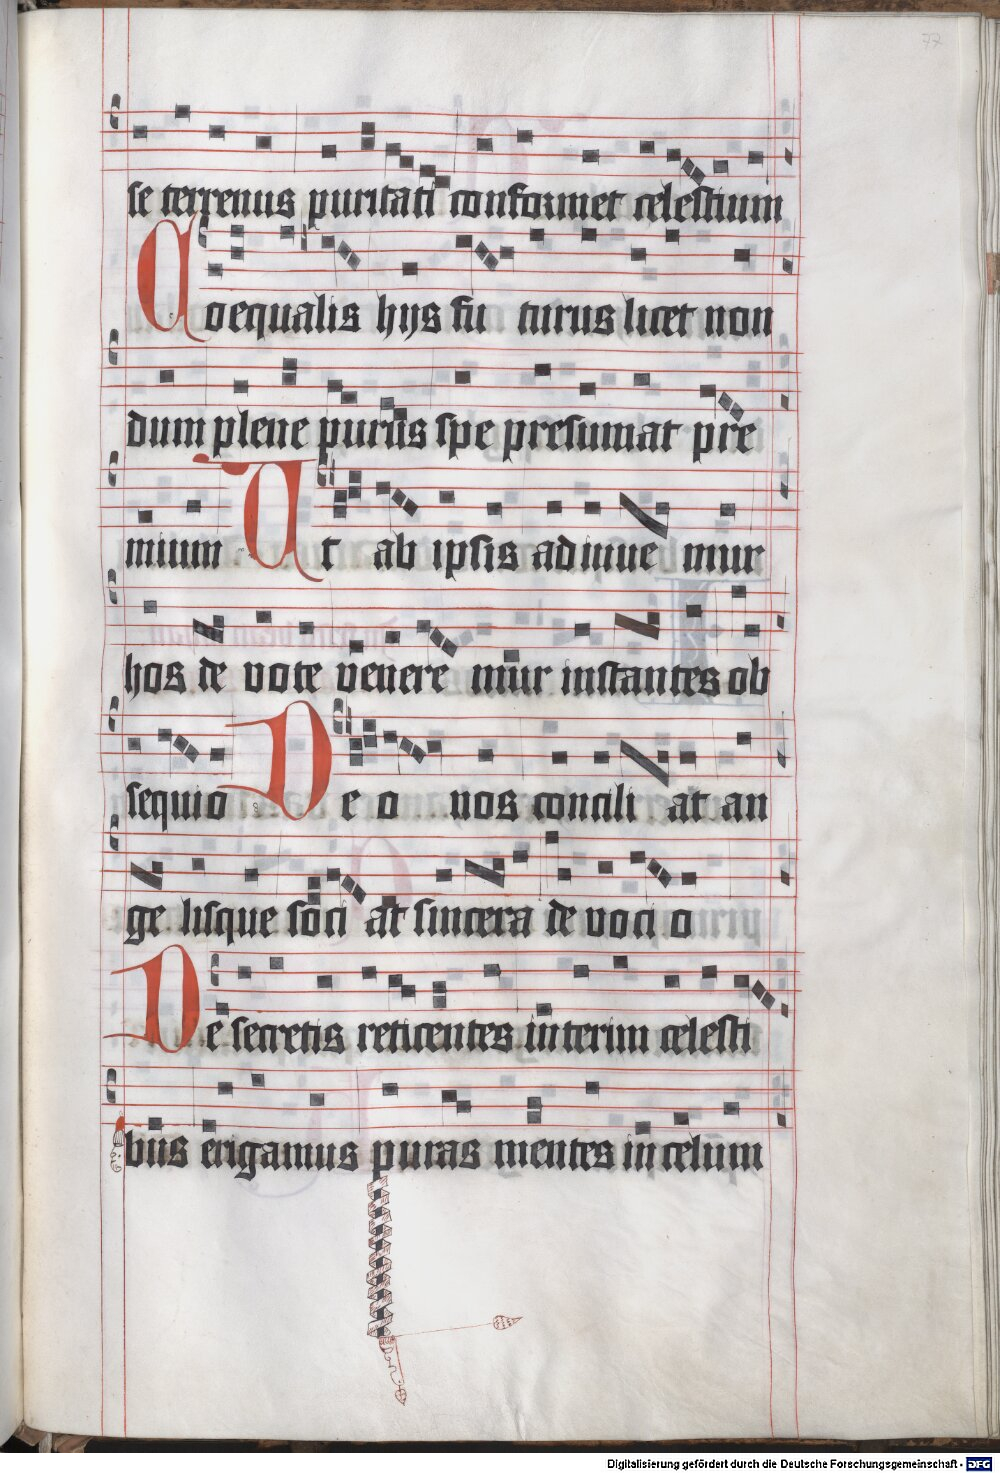 77
se terrenus puritati conformet celestium
Coequalis hijs fu turus licet non
dum plene purus spe presumat pre
mium Ut ab ipsis ad iuue mur
hos de vote venere mur instantes ob
sequio De o nos concili at an
ge lisque soci at sincera de voci o
De secretis reticentes interim celesti
bus erigamus puras mentes in celum
Digitalisierung gefördert durch die Deutsche Forschungsgemeinschaft - DFG